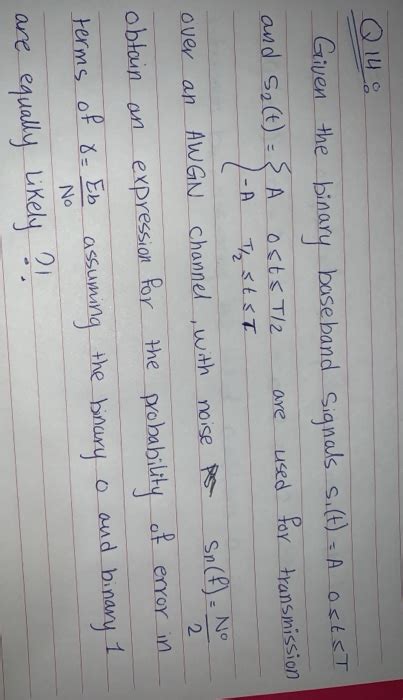 Q 14 :
Given the binary baseband signals s₁(t) = A 0 ≤ t ≤ T
and s₂(t) = { A 0 ≤ t ≤ T/2 are used for transmission
-A T/2 ≤ t ≤ T
over an AWGN channel, with noise Sn(f) = No/2
obtain an expression for the probability of error in
terms of γ = Eb/No assuming the binary 0 and binary 1
are equally likely ?!